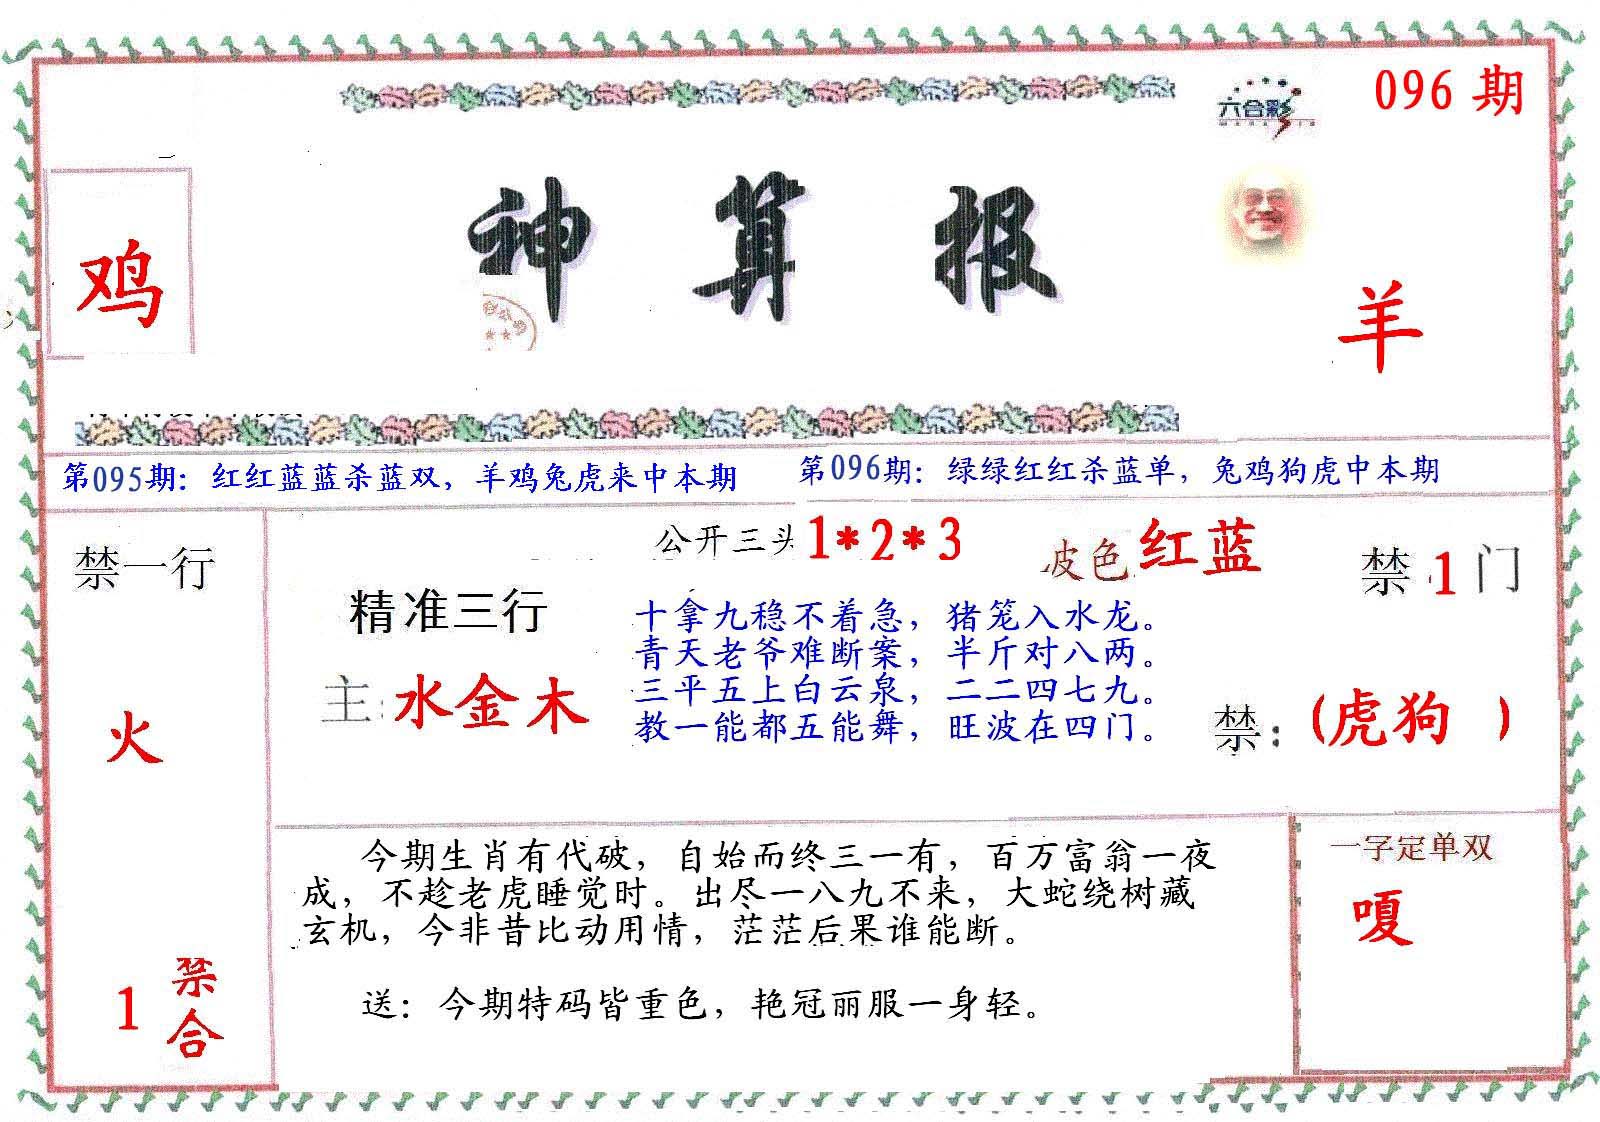 096 期
六合彩
鸡
神算报
羊
第095期：红红蓝蓝杀蓝双，羊鸡兔虎来中本期
第096期：绿绿红红杀蓝单，兔鸡狗虎中本期
禁一行
火
1 禁合
公开三头 1*2*3
波色 红蓝
禁 1 门
精准三行
主: 水金木
十拿九稳不着急，猪笼入水龙。
青天老爷难断案，半斤对八两。
三平五上白云泉，二二四七九。
教一能都五能舞，旺波在四门。
禁: (虎狗 )
今期生肖有代破，自始而终三一有，百万富翁一夜
成，不趁老虎睡觉时。出尽一八九不来，大蛇绕树藏
玄机，今非昔比动用情，茫茫后果谁能断。
送：今期特码皆重色，艳冠丽服一身轻。
一字定单双
嗄